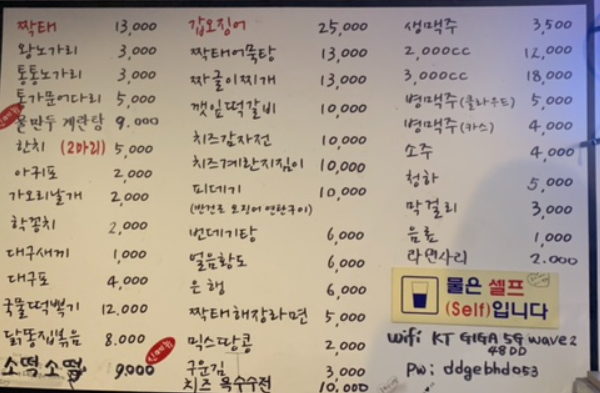 짝태 13,000
왕노가리 3,000
통통노가리 3,000
통가문어다리 5,000
물만두 계란탕 9.000
한치 (2마리) 5,000
아귀포 2,000
가오리날개 2,000
학꽁치 2,000
대구새끼 1,000
대구포 4,000
국물떡뽁기 12.000
닭똥집볶음 8.000
소떡소떡 9,000
갑오징어 25,000
짝태어묵탕 13,000
짜글이찌개 13,000
깻잎떡갈비 10,000
치즈감자전 10,000
치즈계란지짐이 10,000
피데기 10,000
(반건조 오징어 연탄구이)
번데기탕 6,000
얼음황도 6,000
은행 6,000
짝태해장라면 5,000
믹스땅콩 2,000
구운김 3,000
치즈 옥수수전 10,000
생맥주 3,500
2,000cc 12,000
3,000cc 18,000
병맥주(클라우드) 5,000
병맥주(카스) 4,000
소주 4,000
청하 5,000
막걸리 3,000
음료 1,000
라면사리 2.000
물은 셀프
(Self)입니다
wifi KT GIGA 5G wave2
48DD
PW: ddgebhd053